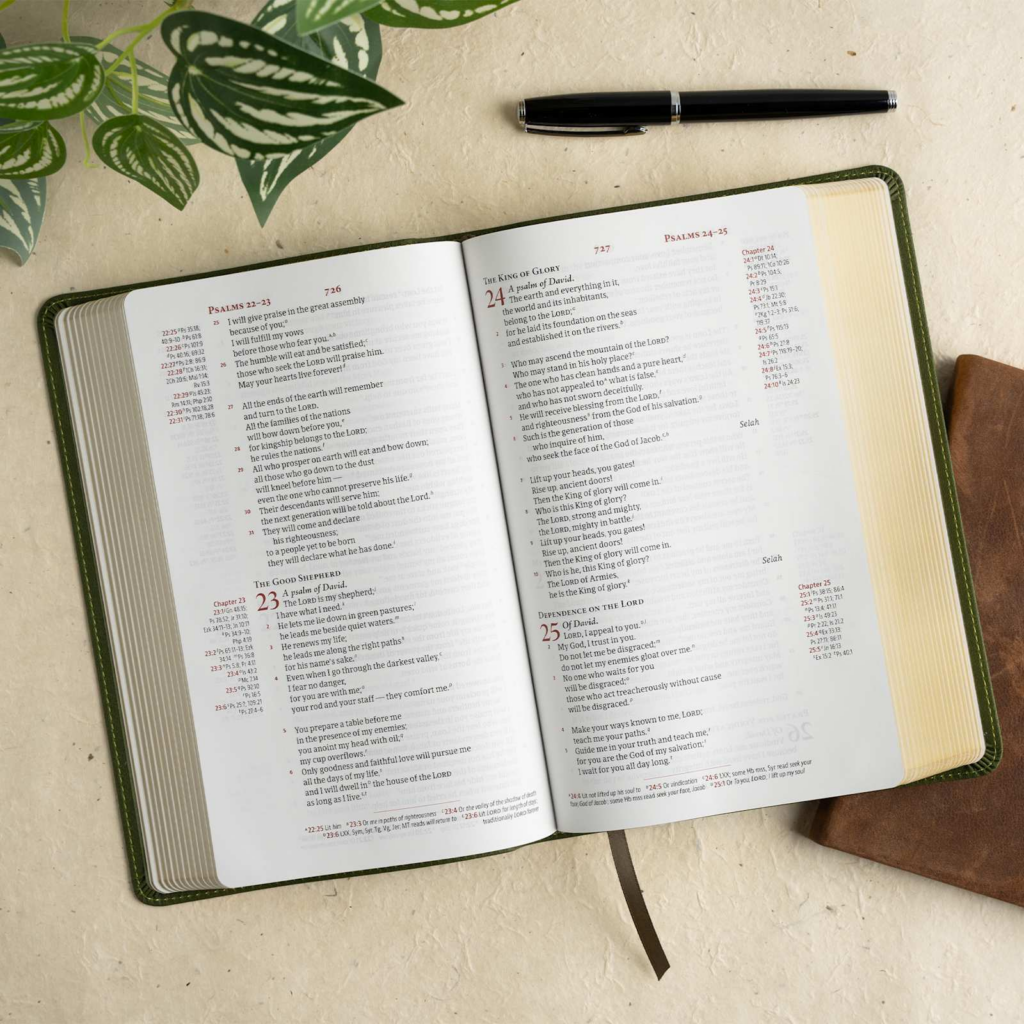 PSALMS 22–23
726
25 I will give praise in the great assembly
because of you;
I will fulfill my vows
before those who fear you.
26 The humble will eat and be satisfied;
those who seek the LORD will praise him.
May your hearts live forever!
27 All the ends of the earth will remember
and turn to the LORD.
All the families of the nations
will bow down before you,
28 for kingship belongs to the LORD;
he rules the nations.
29 All who prosper on earth will eat and bow down;
all those who go down to the dust
will kneel before him —
even the one who cannot preserve his life.
30 Their descendants will serve him;
the next generation will be told about the Lord.
31 They will come and declare
his righteousness;
to a people yet to be born
they will declare what he has done.
THE GOOD SHEPHERD
23 A psalm of David.
The LORD is my shepherd;
I have what I need.
2 He lets me lie down in green pastures;
he leads me beside quiet waters.
3 He renews my life;
he leads me along the right paths
for his name's sake.
4 Even when I go through the darkest valley,
I fear no danger,
for you are with me;
your rod and your staff — they comfort me.
5 You prepare a table before me
in the presence of my enemies;
you anoint my head with oil;
my cup overflows.
6 Only goodness and faithful love will pursue me
all the days of my life,
and I will dwell in the house of the LORD
as long as I live.
22:25 Lit him 23:3 Or me in paths of righteousness 23:4 Or the valley of the shadow of death
23:6 LXX, Sym, Syr, Tg, Vg, Jer; MT reads will return to 23:6 Lit LORD for length of days;
traditionally LORD forever
Chapter 23
727
PSALMS 24–25
THE KING OF GLORY
24 A psalm of David.
The earth and everything in it,
the world and its inhabitants,
belong to the LORD;
2 for he laid its foundation on the seas
and established it on the rivers.
3 Who may ascend the mountain of the LORD?
Who may stand in his holy place?
4 The one who has clean hands and a pure heart,
who has not appealed to what is false,
and who has not sworn deceitfully.
5 He will receive blessing from the LORD,
and righteousness from the God of his salvation.
6 Such is the generation of those
who inquire of him,
who seek the face of the God of Jacob.
Selah
7 Lift up your heads, you gates!
Rise up, ancient doors!
Then the King of glory will come in.
8 Who is this King of glory?
The LORD, strong and mighty,
the LORD, mighty in battle.
9 Lift up your heads, you gates!
Rise up, ancient doors!
Then the King of glory will come in.
10 Who is he, this King of glory?
The LORD of Armies,
he is the King of glory.
Selah
DEPENDENCE ON THE LORD
25 Of David.
LORD, I appeal to you.
2 My God, I trust in you.
Do not let me be disgraced;
do not let my enemies gloat over me.
3 No one who waits for you
will be disgraced;
those who act treacherously without cause
will be disgraced.
4 Make your ways known to me, LORD;
teach me your paths.
5 Guide me in your truth and teach me,
for you are the God of my salvation;
I wait for you all day long.
24:4 Lit not lifted up his soul to 24:5 Or vindication 24:6 LXX; some Hb mss, Syr read seek your
face, God of Jacob; some Hb mss read seek your face, Jacob 25:1 Or To you, LORD, I lift up my soul
Chapter 24
Chapter 25